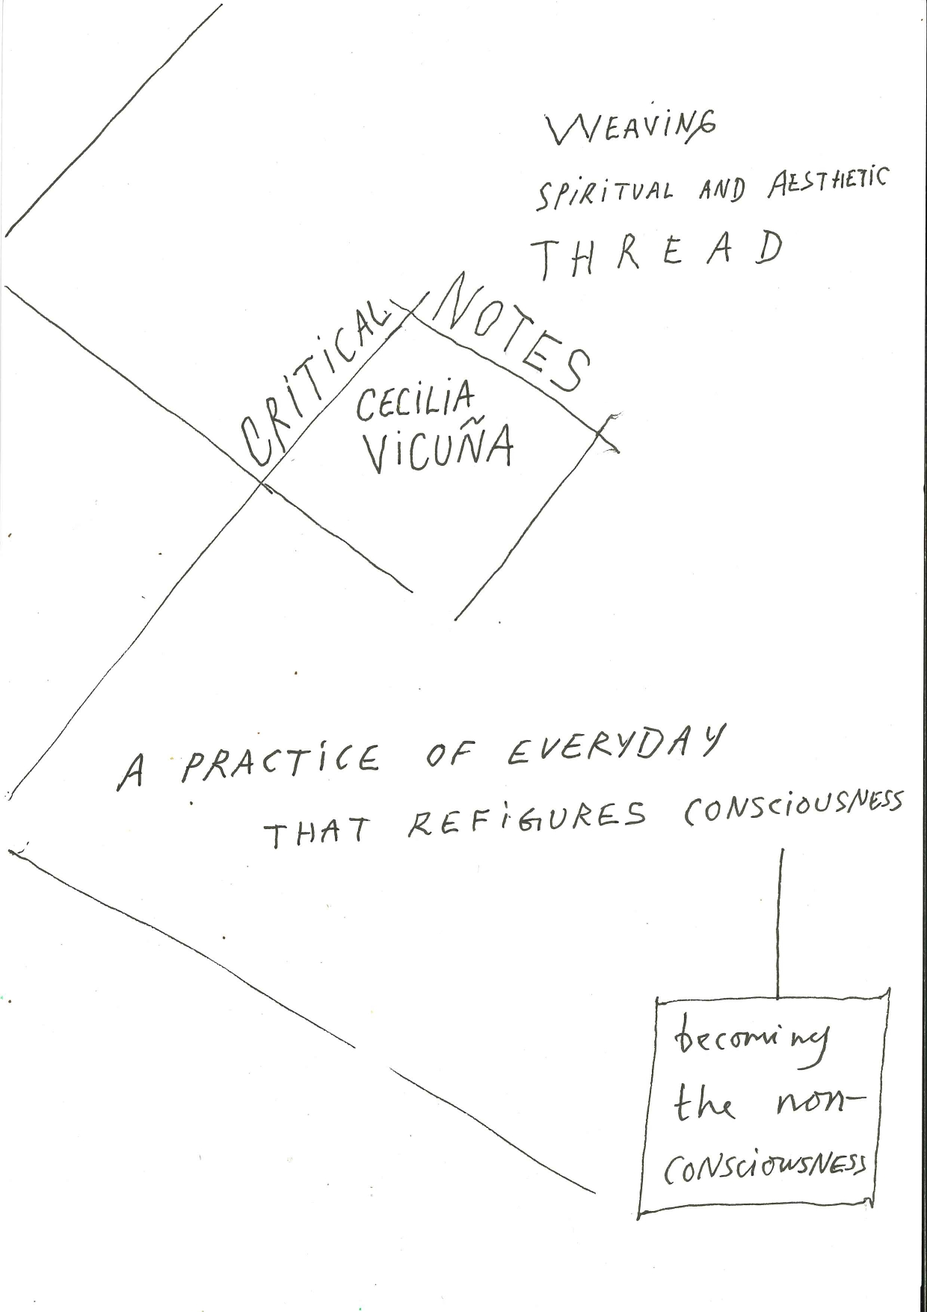 WEAVING
SPIRITUAL AND AESTHETIC
THREAD
CRITICAL NOTES
CECILIA
VICUÑA
A PRACTICE OF EVERYDAY
THAT REFIGURES CONSCIOUSNESS
becoming
the non-
CONSCIOWSNESS